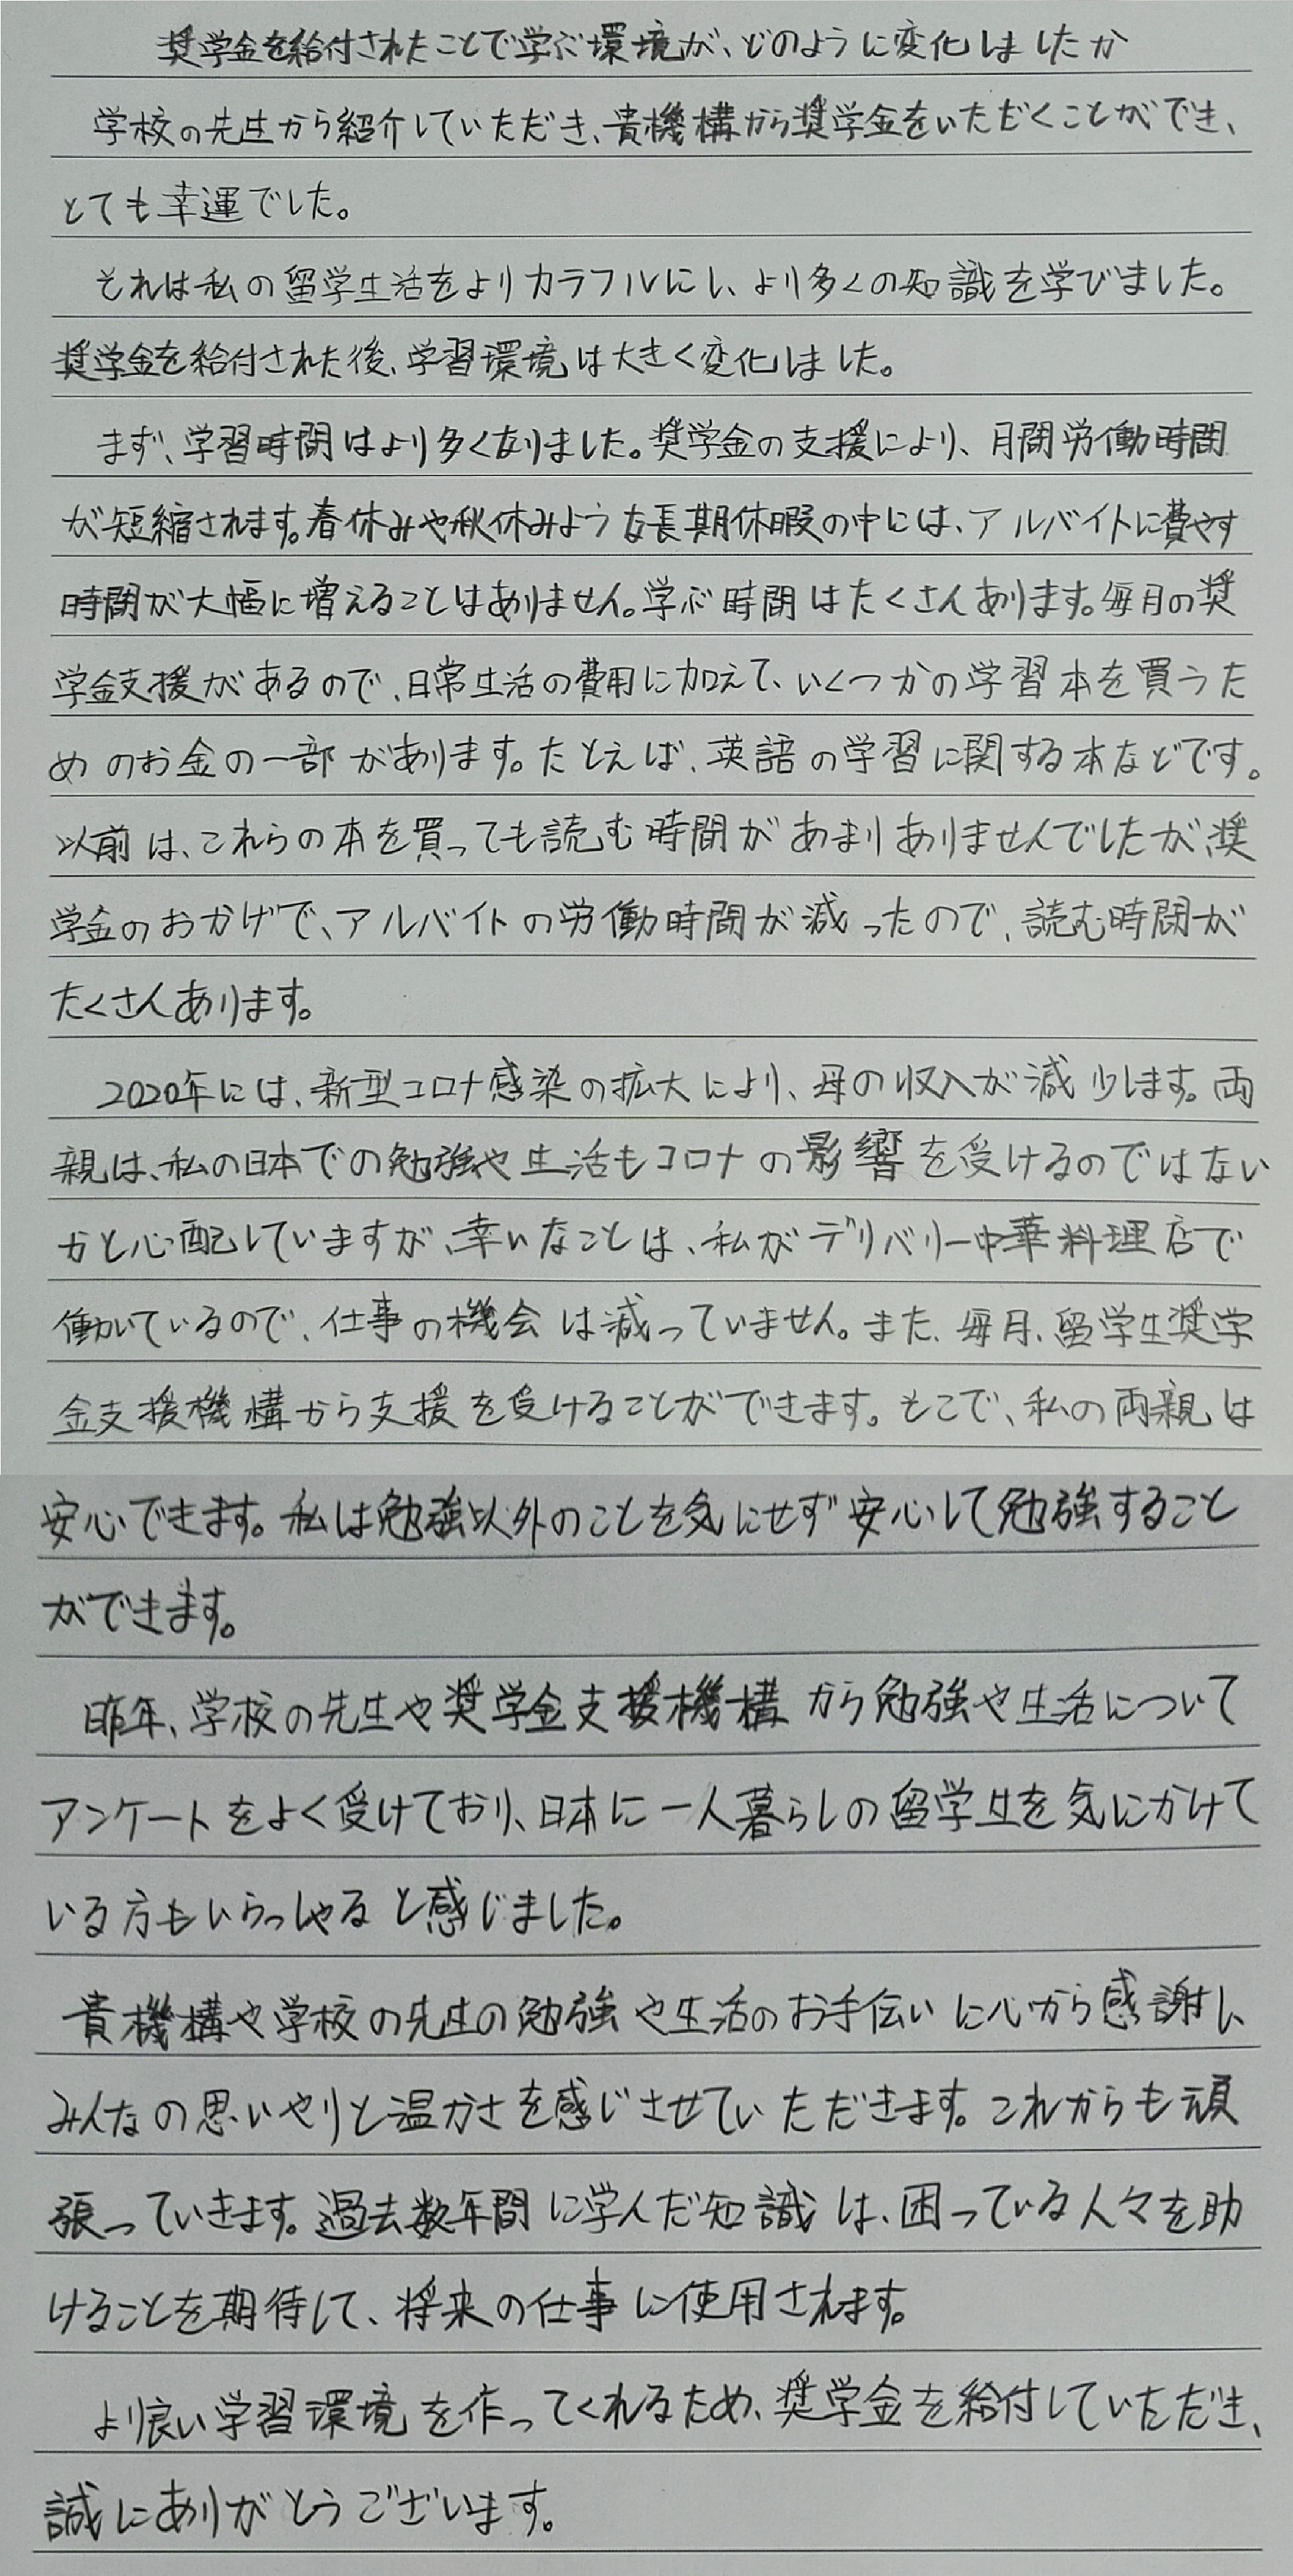 奨学金を給付されたことで学ぶ環境が、どのように変化しましたか
学校の先生から紹介していただき、貴機構から奨学金をいただくことができ、
とても幸運でした。
それは私の留学生活をよりカラフルにし、より多くの知識を学びました。
奨学金を給付された後、学習環境は大きく変化しました。
まず、学習時間はより多くなりました。奨学金の支援により、月間労働時間
が短縮されます。春休みや秋休みような長期休暇の中には、アルバイトに費やす
時間が大幅に増えることはありません。学ぶ時間はたくさんあります。毎月の奨
学金支援があるので、日常生活の費用に加えて、いくつかの学習本を買うた
めのお金の一部があります。たとえば、英語の学習に関する本などです。
以前は、これらの本を買っても読む時間があまりありませんでしたが、奨
学金のおかげで、アルバイトの労働時間が減ったので、読む時間が
たくさんあります。
2020年には、新型コロナ感染の拡大により、母の収入が減少します。両
親は、私の日本での勉強や生活もコロナの影響を受けるのではない
かと心配していますが、幸いなことは、私がデリバリー中華料理店で
働いているので、仕事の機会は減っていません。また、毎月、留学生奨学
金支援機構から支援を受けることができます。そこで、私の両親は
安心できます。私は勉強以外のことを気にせず安心して勉強すること
ができます。
昨年、学校の先生や奨学金支援機構から勉強や生活について
アンケートをよく受けており、日本に一人暮らしの留学生を気にかけて
いる方もいらっしゃると感じました。
貴機構や学校の先生の勉強や生活のお手伝いに心から感謝し、
みんなの思いやりと温かさを感じさせていただきます。これからも頑
張っていきます。過去数年間に学んだ知識は、困っている人々を助
けることを期待して、将来の仕事に使用されます。
より良い学習環境を作ってくれるため、奨学金を給付していただき、
誠にありがとうございます。